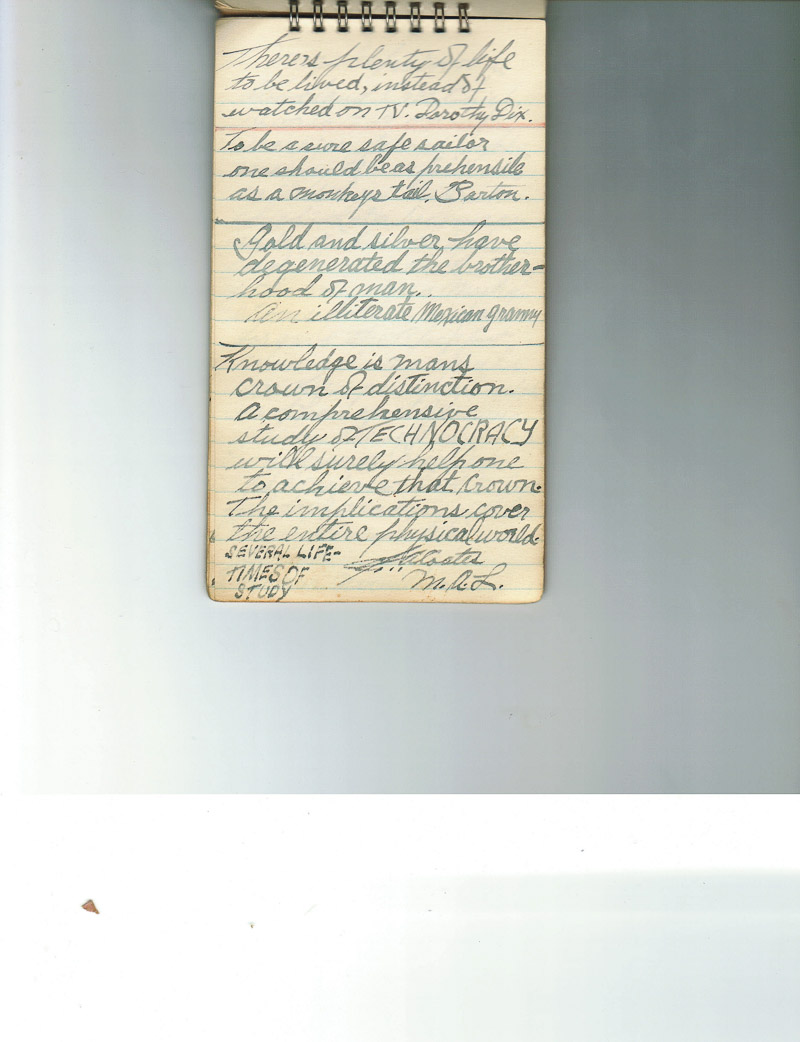 Theres plenty of life
to be lived, instead of
watched on TV. Dorothy Dix.
To be a sure safe sailor
one should be as prehensile
as a monkeys tail. Barton.
Gold and silver have
degenerated the brother-
hood of man..
an illiterate Mexican granny
Knowledge is mans
crown of distinction.
A comprehensive
study of TECHNOCRACY
will surely help one
to achieve that crown.
The implications cover
the entire physical world.
SEVERAL LIFE-
TIMES OF
STUDY
M.A.L.